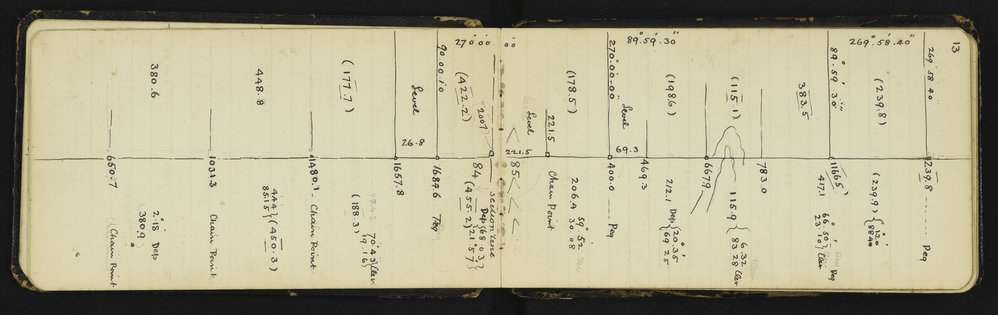 13
269° 58' 40"
239.8 ----- Peg
269° 58' 40"
(239.8)
(239.9)
88 40
89° 59' 30"
383.5
1166.5
417.1
66° 50'
23° 10' Elev
Peg
783.0
(115.1)
115.9
6.32
83 28 Elev
667.9
89° 59' 30"
(198.6)
212.1 Dep
20° 35'
69 25
469.3
69.3
Level
270° 00' 00"
400.0 Peg
(178.5)
206.4
59° 52'
30 08
Chain Point
221.5
Level
221.5
85
00
Section line
270° 00'
2007
84
(422.2)
(455.2)
Dep
68° 03'
21° 57'
90 00 10
1684.6 Peg
26.8
Level
1657.8
(177.7)
(188.3)
70° 43'
19° 16' Elev
1480.1 - Chain Point
448.8
444
85.15
(450.3)
1031.3 Chain Point
380.6
2° 18' Dep
380.9
650.7
(Chain Point